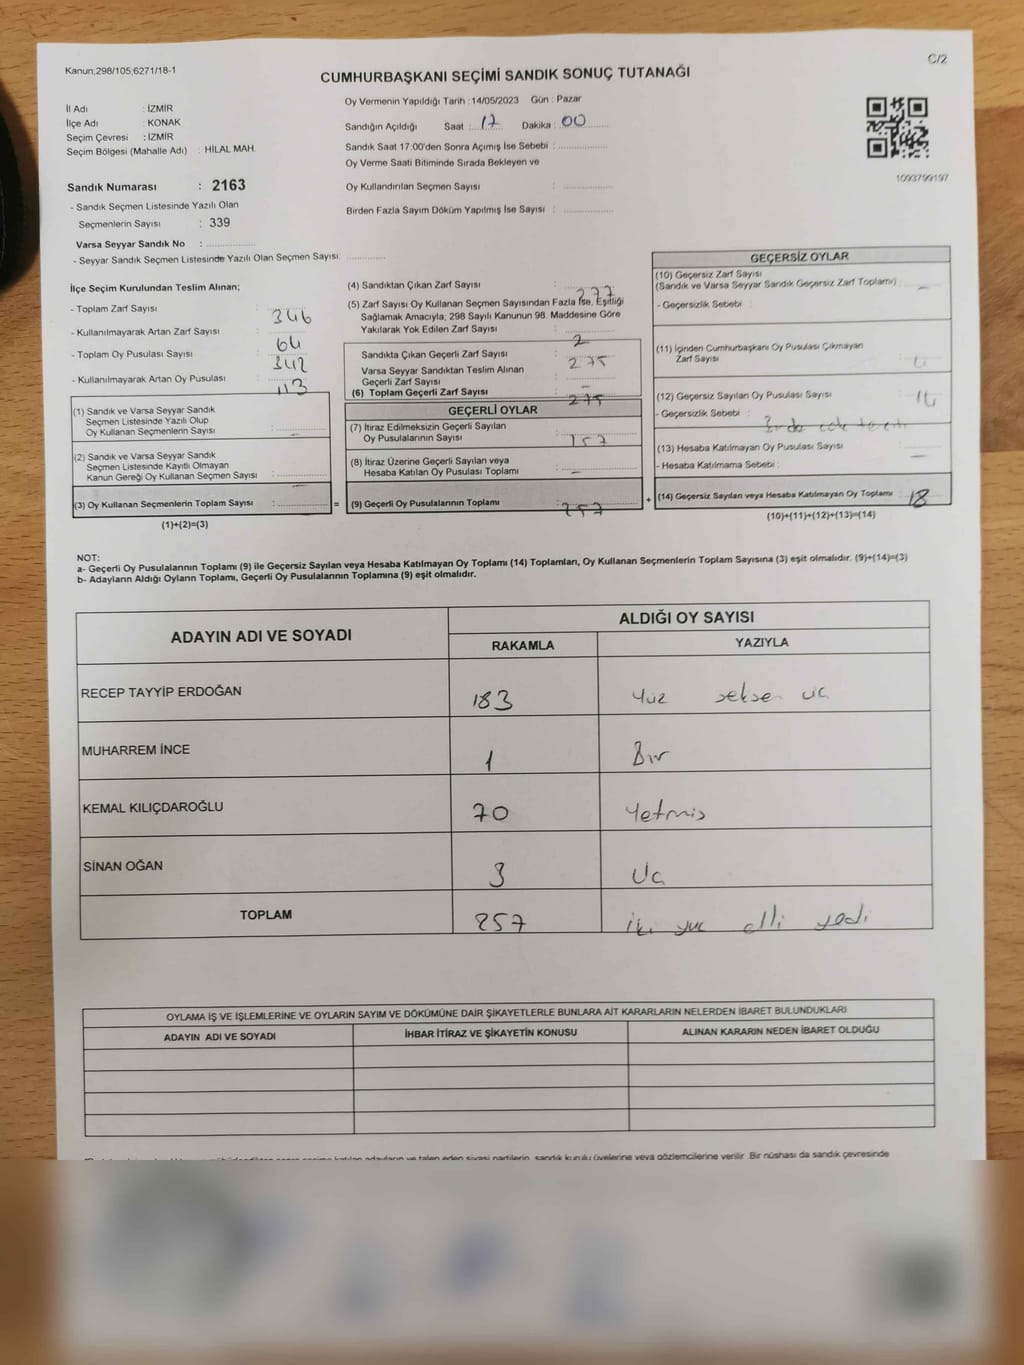 Kanun;298/105;6271/18-1
C/2
CUMHURBAŞKANI SEÇİMİ SANDIK SONUÇ TUTANAĞI
İl Adı : İZMİR
İlçe Adı : KONAK
Seçim Çevresi : İZMİR
Seçim Bölgesi (Mahalle Adı) : HİLAL MAH.
Sandık Numarası : 2163
- Sandık Seçmen Listesinde Yazılı Olan
Seçmenlerin Sayısı : 339
Varsa Seyyar Sandık No :
- Seyyar Sandık Seçmen Listesinde Yazılı Olan Seçmen Sayısı:
Oy Vermenin Yapıldığı Tarih :14/05/2023 Gün : Pazar
Sandığın Açıldığı Saat : 17 Dakika : 00
Sandık Saat 17:00'den Sonra Açımış İse Sebebi :
Oy Verme Saati Bitiminde Sırada Bekleyen ve
Oy Kullandırılan Seçmen Sayısı :
Birden Fazla Sayım Döküm Yapılmış İse Sayısı :
1093799197
İlçe Seçim Kurulundan Teslim Alınan;
- Toplam Zarf Sayısı : 346
- Kullanılmayarak Artan Zarf Sayısı : 64
- Toplam Oy Pusulası Sayısı : 342
- Kullanılmayarak Artan Oy Pusulası : 113
(1) Sandık ve Varsa Seyyar Sandık
Seçmen Listesinde Yazılı Olup
Oy Kullanan Seçmenlerin Sayısı : –
(2) Sandık ve Varsa Seyyar Sandık
Seçmen Listesinde Kayıtlı Olmayan
Kanun Gereği Oy Kullanan Seçmen Sayısı : –
(3) Oy Kullanan Seçmenlerin Toplam Sayısı : =
(1)+(2)=(3)
(4) Sandıktan Çıkan Zarf Sayısı : 277
(5) Zarf Sayısı Oy Kullanan Seçmen Sayısından Fazla İse, Eşitliği
Sağlamak Amacıyla; 298 Sayılı Kanunun 98. Maddesine Göre
Yakılarak Yok Edilen Zarf Sayısı : 2
Sandıkta Çıkan Geçerli Zarf Sayısı : 275
Varsa Seyyar Sandıktan Teslim Alınan
Geçerli Zarf Sayısı : –
(6) Toplam Geçerli Zarf Sayısı : 275
GEÇERLİ OYLAR
(7) İtiraz Edilmeksizin Geçerli Sayılan
Oy Pusulalarının Sayısı :
(8) İtiraz Üzerine Geçerli Sayılan veya
Hesaba Katılan Oy Pusulası Toplamı : –
(9) Geçerli Oy Pusulalarının Toplamı : 257 +
GEÇERSİZ OYLAR
(10) Geçersiz Zarf Sayısı
(Sandık ve Varsa Seyyar Sandık Geçersiz Zarf Toplamı) : –
- Geçersizlik Sebebi :
(11) İçinden Cumhurbaşkanı Oy Pusulası Çıkmayan
Zarf Sayısı : 4
(12) Geçersiz Sayılan Oy Pusulası Sayısı : 14
- Geçersizlik Sebebi :
(13) Hesaba Katılmayan Oy Pusulası Sayısı : –
- Hesaba Katılmama Sebebi :
(14) Geçersiz Sayılan veya Hesaba Katılmayan Oy Toplamı : 18
(10)+(11)+(12)+(13)=(14)
NOT:
a- Geçerli Oy Pusulalarının Toplamı (9) ile Geçersiz Sayılan veya Hesaba Katılmayan Oy Toplamı (14) Toplamları, Oy Kullanan Seçmenlerin Toplam Sayısına (3) eşit olmalıdır. (9)+(14)=(3)
b- Adayların Aldığı Oyların Toplamı, Geçerli Oy Pusulalarının Toplamına (9) eşit olmalıdır.
ADAYIN ADI VE SOYADI ALDIĞI OY SAYISI
RAKAMLA YAZIYLA
RECEP TAYYİP ERDOĞAN 183 Yüz seksen uc
MUHARREM İNCE 1 Bir
KEMAL KILIÇDAROĞLU 70 Yetmis
SİNAN OĞAN 3 Uc
TOPLAM 257 iki yuz elli yedi
OYLAMA İŞ VE İŞLEMLERİNE VE OYLARIN SAYIM VE DÖKÜMÜNE DAİR ŞİKAYETLERLE BUNLARA AİT KARARLARIN NELERDEN İBARET BULUNDUKLARI
ADAYIN ADI VE SOYADI İHBAR İTİRAZ VE ŞİKAYETİN KONUSU ALINAN KARARIN NEDEN İBARET OLDUĞU
sandık kurulu üyelerine veya gözlemcilerine verilir .Bir nüshası da sandık çevresinde